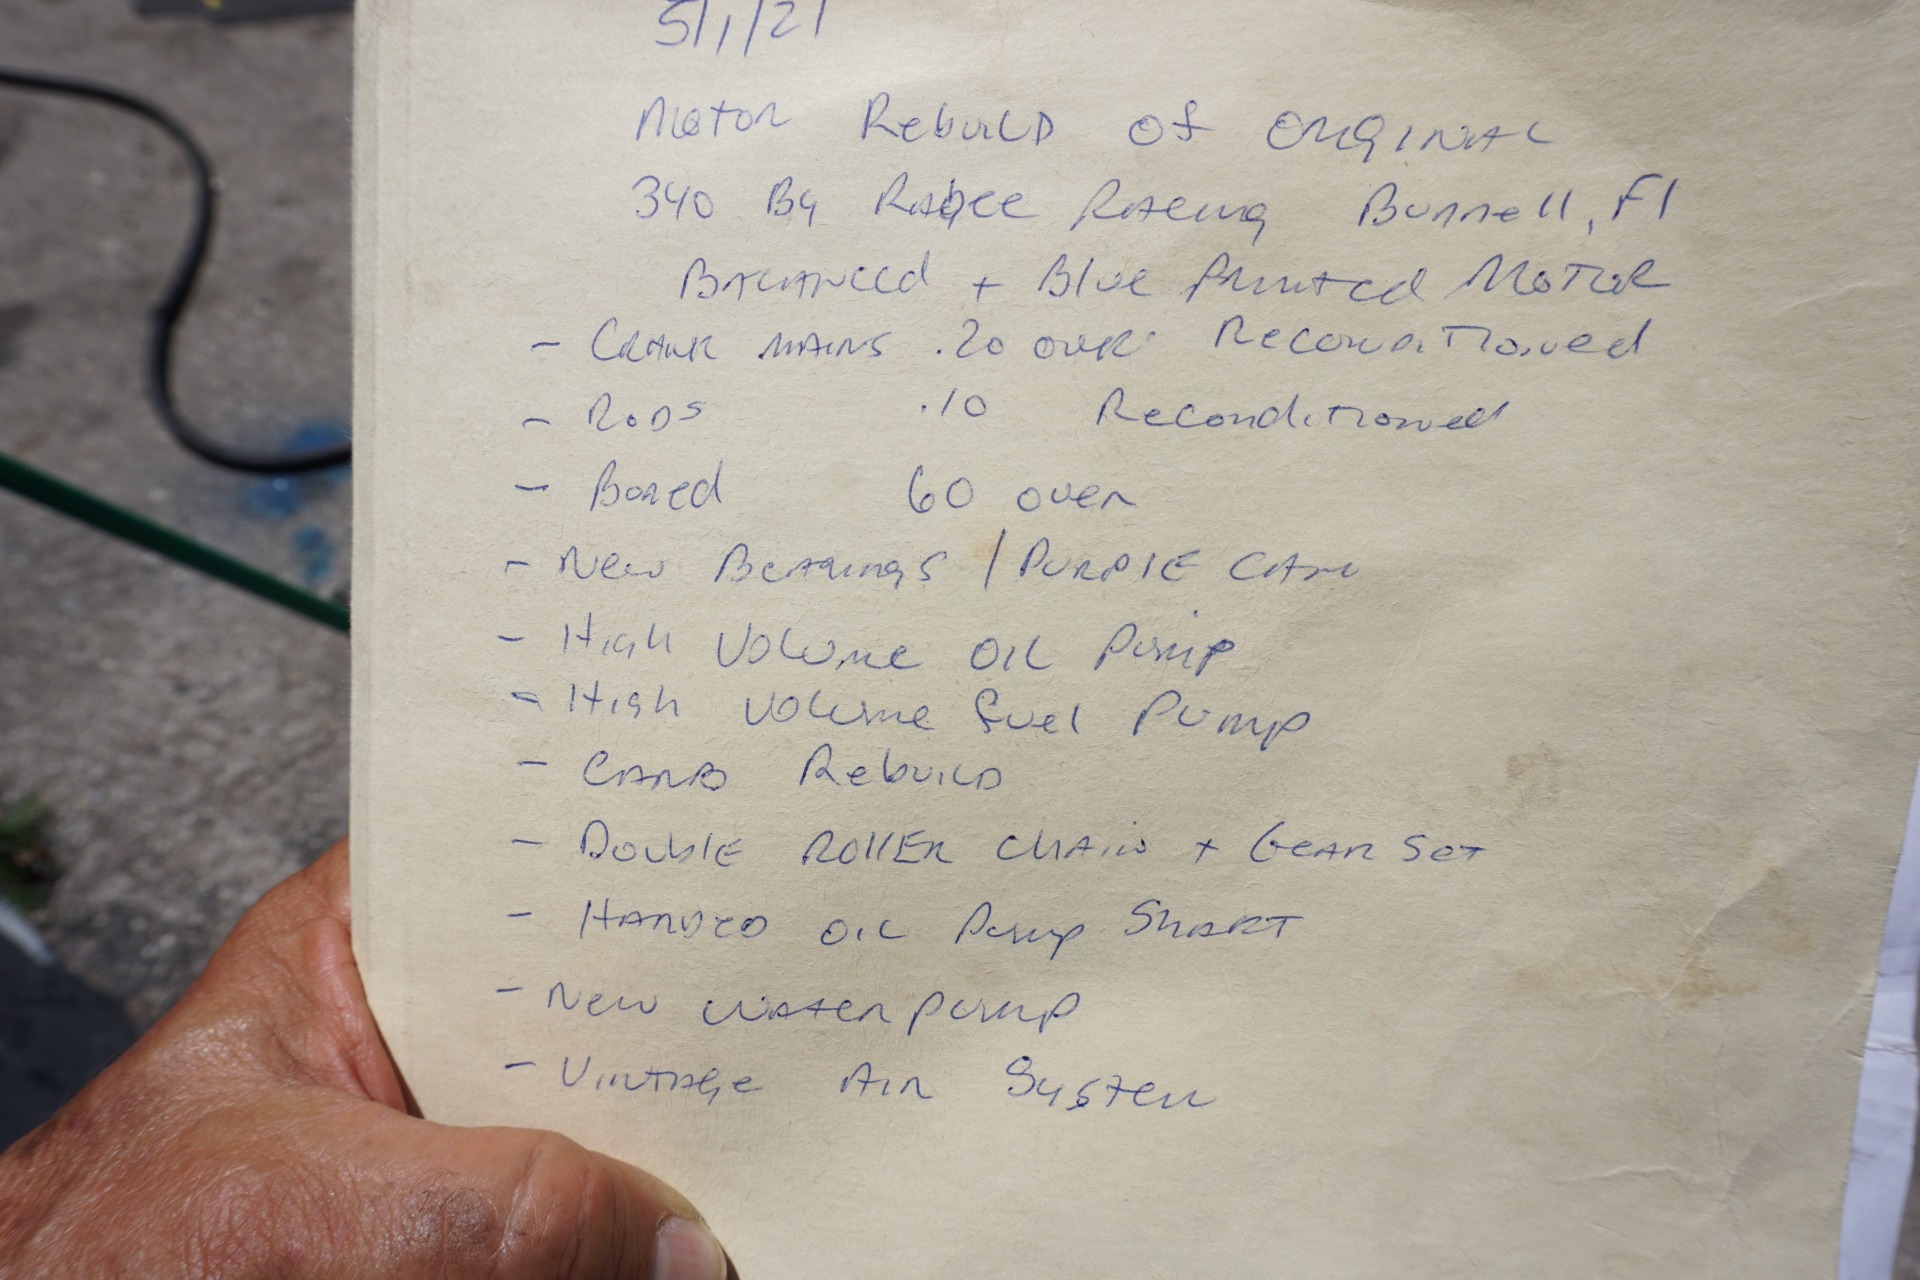 5/1/21
Motor Rebuild of Orginal
340 By Racing Bunnell, Fl
Balanced + Blue Printed Motor
- Crank mains .20 over Reconditioned
- Rods .10 Reconditioned
- Bored 60 over
- New Bearings / Purple Cam
- High Volume Oil Pump
- High Volume fuel Pump
- Carb Rebuild
- Double Roller Chain + Gear Set
- Harded Oil Pump Shaft
- New Water pump
- Vintage Air System